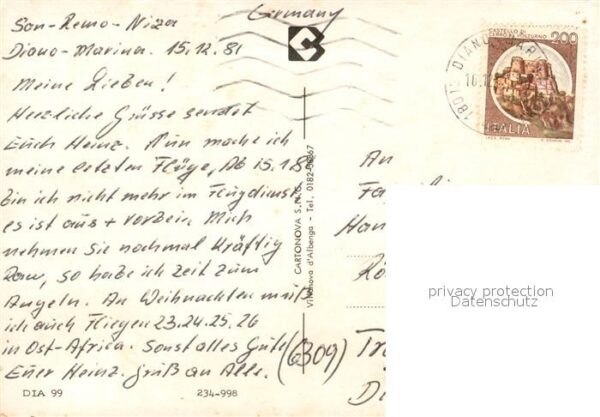 Germany
San-Remo-Niza
Diano-Marina. 15.12.81
Meine Lieben!
Herzliche Grüsse sendet
Euch Heinz. Nun mache ich
meine letzten Flüge, Ab 15.1.8
bin ich nicht mehr im Flugdienst
es ist aus + vorbein. Mich
nehmen Sie nochmal kräftig
ran, so habe ich Zeit zum
Angeln. An Weihnachten muß
ich auch fliegen 23.24.25.26
in Ost-Africa. Sonst alles Gute
Euer Heinz. Gruß an Alle.
DIA 99
234-998
CARTONOVA S.N.C.
Villanova d'Albenga - Tel. 0182-
CASTELLO DI
200
ITALIA
18013 DIANO
An
Fa
Han
(6309)
Tr
Di
privacy protection
Datenschutz